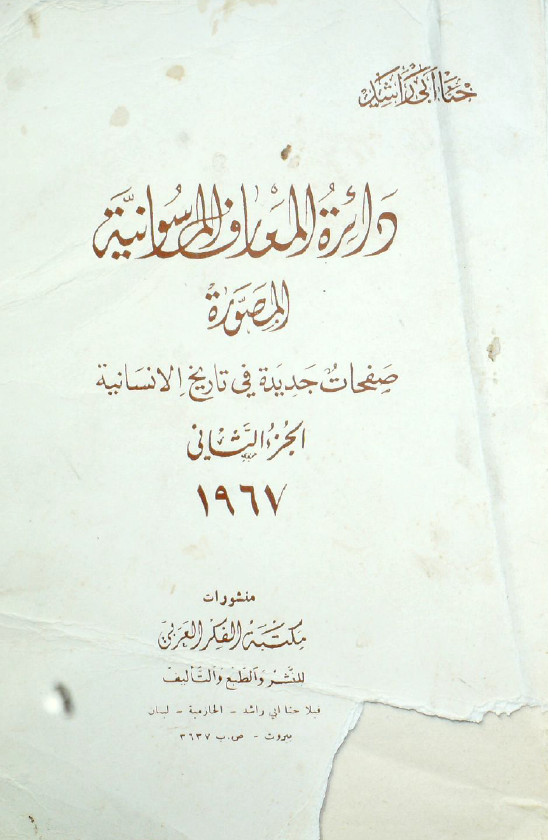 حنا أبي راشد
دائرة المعارف الماسونية
المصورة
صفحات جديدة في تاريخ الانسانية
الجزء الثاني
١٩٦٧
منشورات
مكتبة الفكر العربي
للنشر والطبع والتأليف
فيلا حنا ابي راشد - الحازمية - لبنان
بيروت - ص.ب ٣٦٣٧